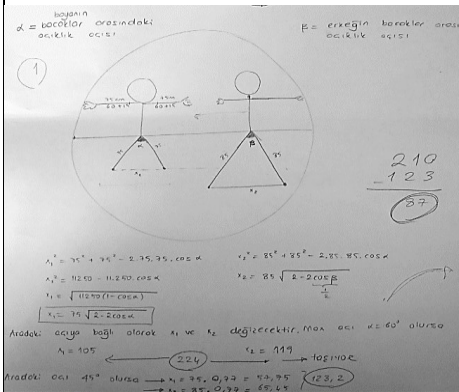 bayanın
α = bacaklar arasındaki
açıklık açısı
β = erkeğin bacaklar arası
açıklık açısı
1
75cm
75cm
60+15
60+15
α
β
75
75
85
85
x₁
x₂
210
- 123
87
x₁² = 75² + 75² - 2.75.75.cosα
x₁² = 11250 - 11.250.cosα
x₁ = √11250(1-cosα)
x₁ = 75 √2-2cosα
x₂² = 85² + 85² - 2.85.85.cosα
x₂ = 85 √2-2cosβ
Aradaki açıya bağlı olarak x₁ ve x₂ değişecektir. Max açı α=60° olursa
x₁ = 105
224
x₂ = 119
Aradaki açı 45° olursa → x₁ = 75. 0,77 = 57,75
→ x₂ = 85. 0,77 = 65,45
123,2